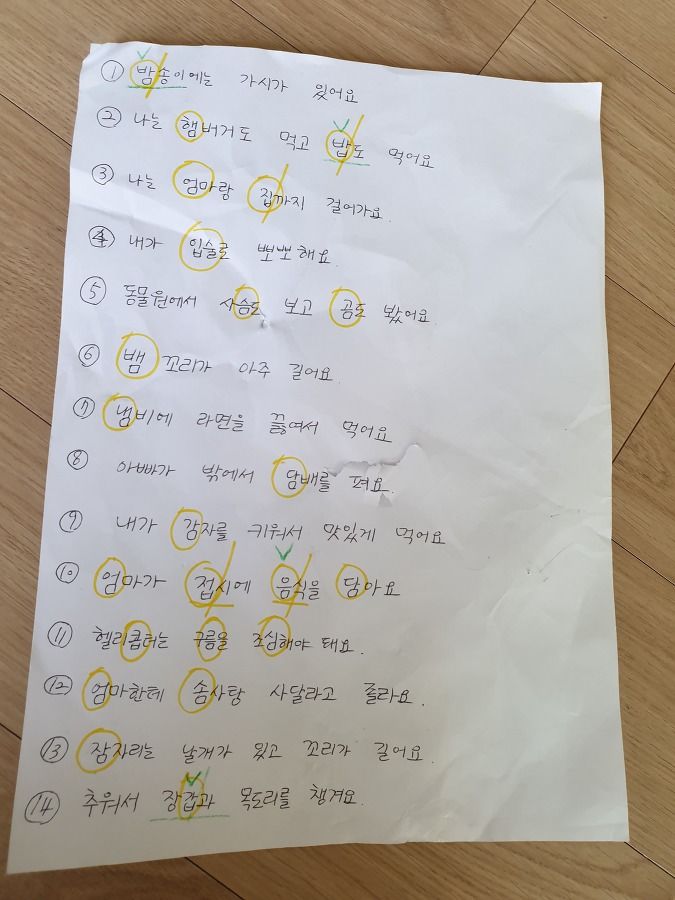 ① 밤송이에는 가시가 있어요
② 나는 햄버거도 먹고 밥도 먹어요
③ 나는 엄마랑 집까지 걸어가요.
④ 내가 입술로 뽀뽀해요.
⑤ 동물원에서 사슴도 보고 곰도 봤어요.
⑥ 뱀 꼬리가 아주 길어요.
⑦ 냄비에 라면을 끓여서 먹어요
⑧ 아빠가 밖에서 담배를 펴요.
⑨ 내가 감자를 키워서 맛있게 먹어요
⑩ 엄마가 접시에 음식을 담아요
⑪ 헬리콥터는 구름을 조심해야 돼요.
⑫ 엄마한테 솜사탕 사달라고 졸라요.
⑬ 잠자리는 날개가 있고 꼬리가 길어요.
⑭ 추워서 장갑과 목도리를 챙겨요.